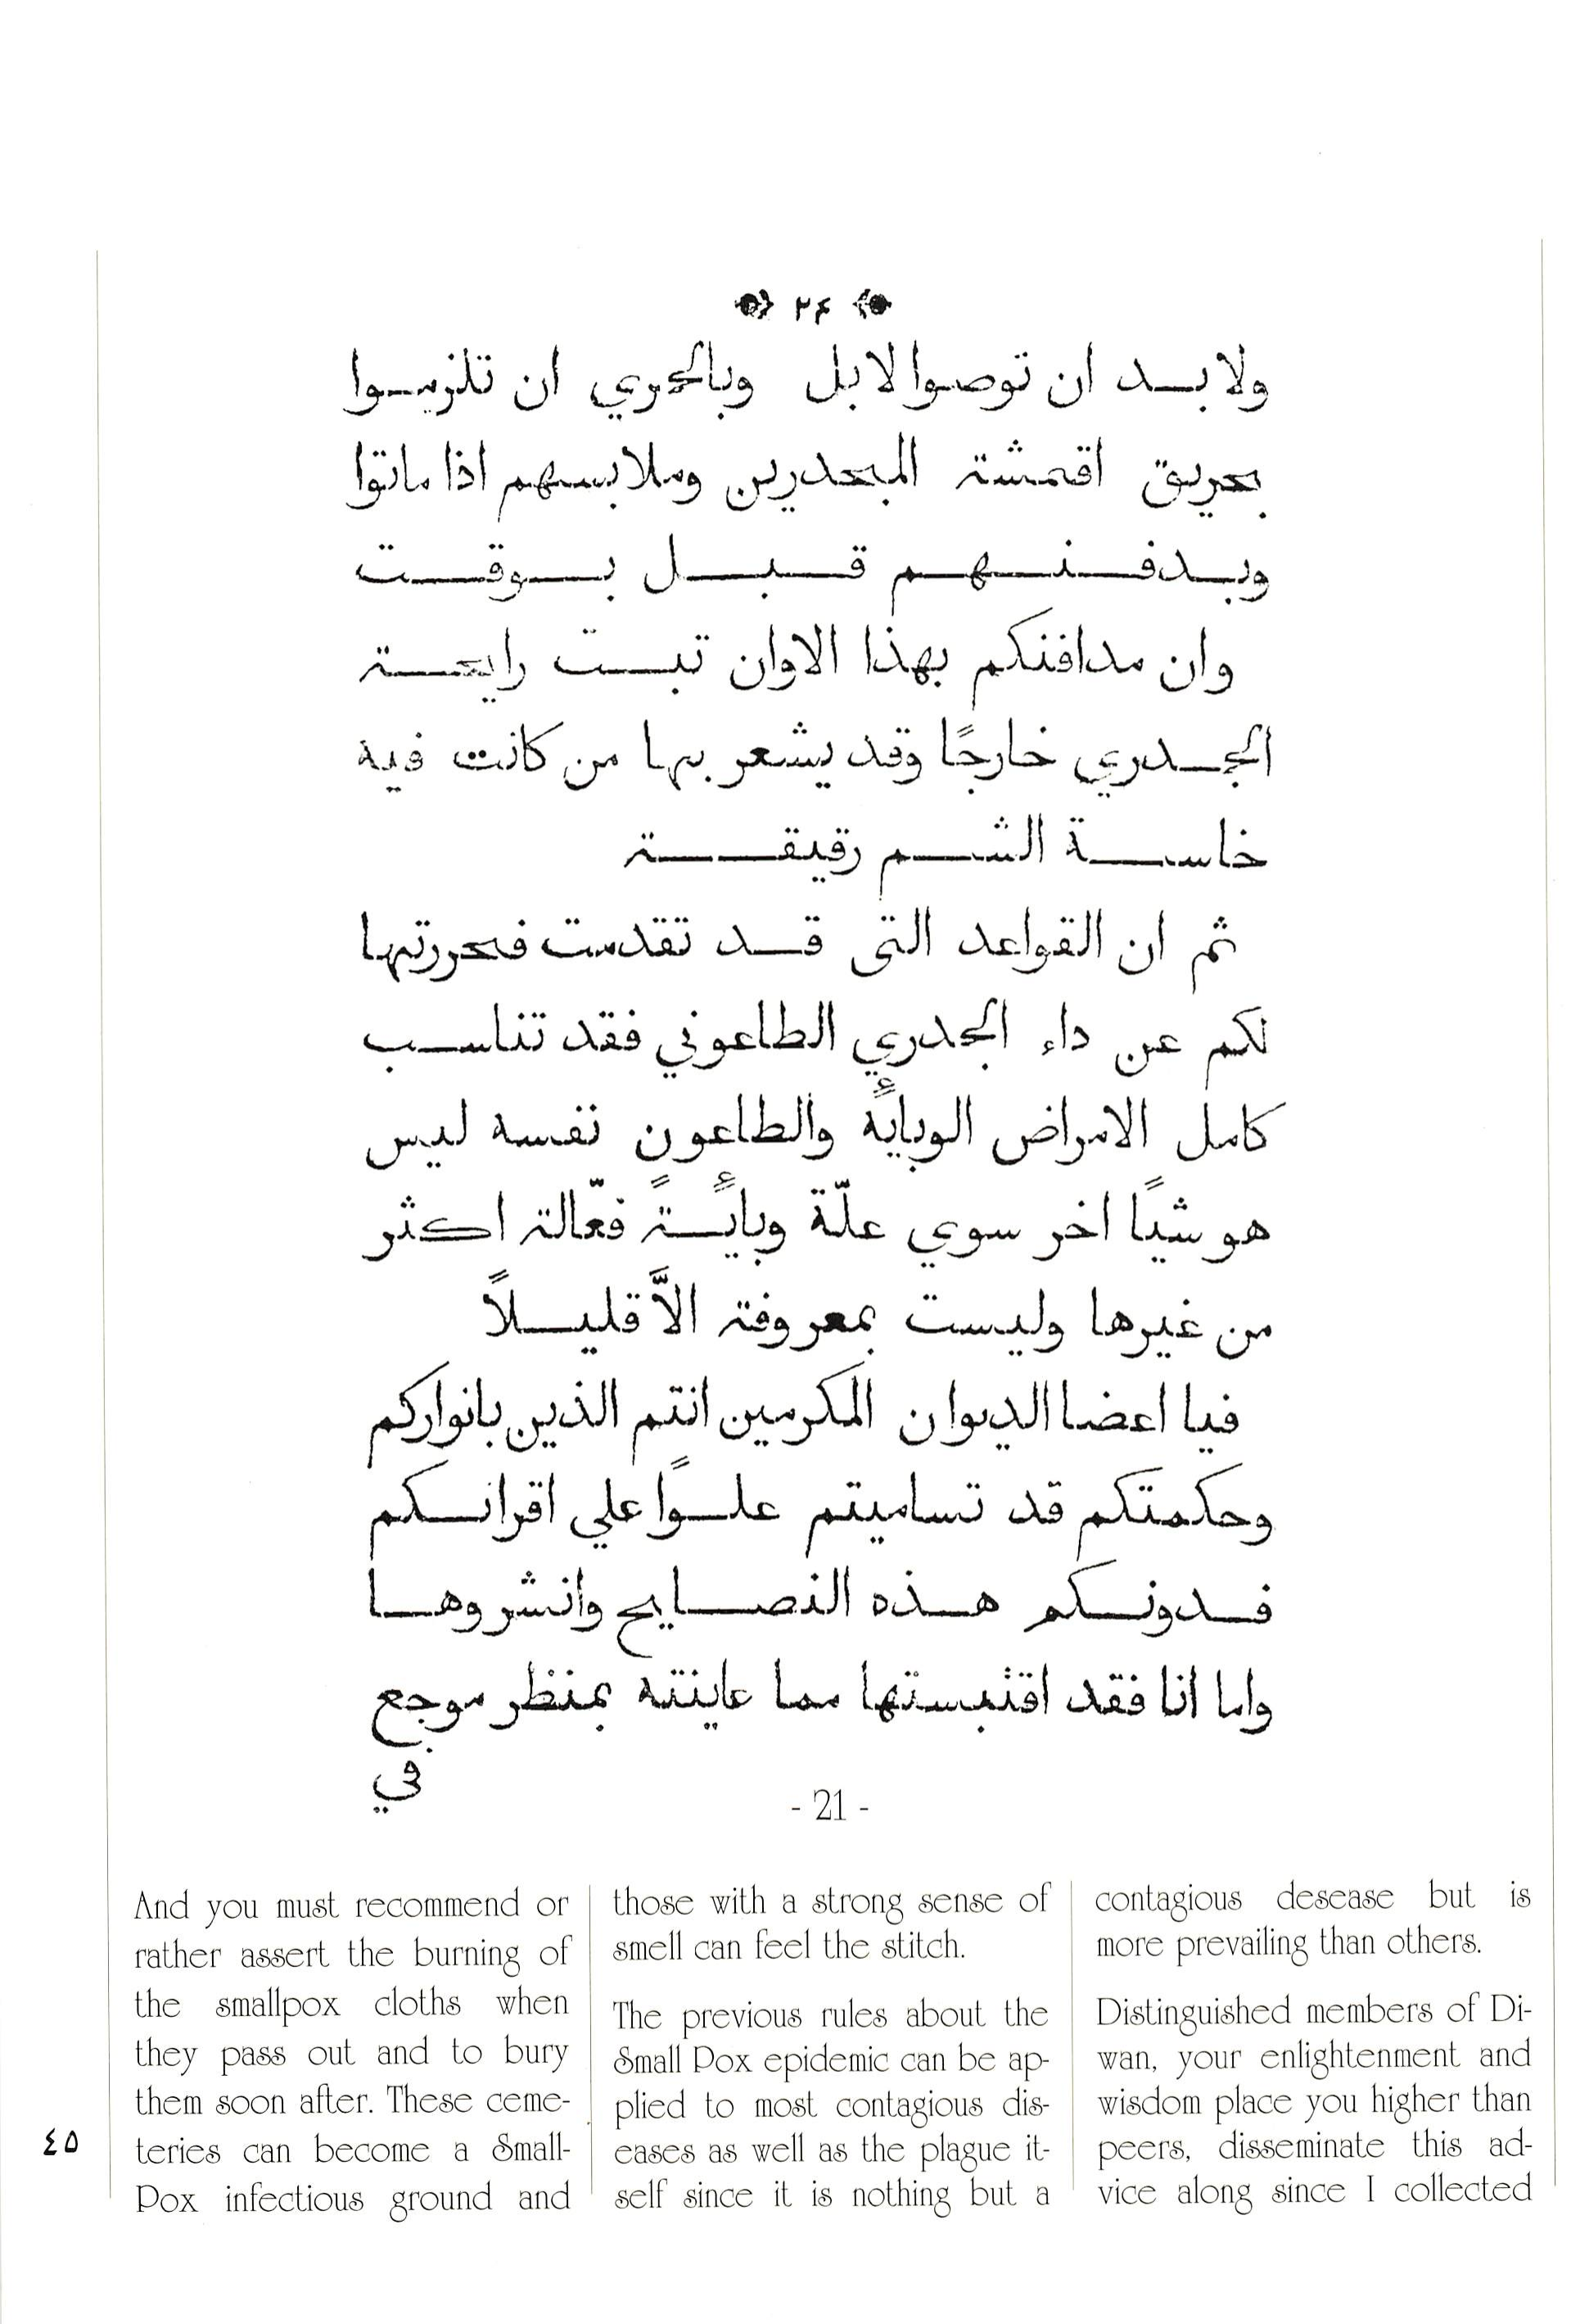 ۲۴
ولا بد ان توصوا لا بل وبالحري ان تلزموا
بحريق اقمشة المجدرين وملابسهم اذا ماتوا
وبدفنهم قبل بوقت
وان مدافنكم بهذا الاوان تبت رايحة
الجدري خارجًا وقد يشعر بها من كانت فيه
خاسة الشم رقيقة
ثم ان القواعد التى قد تقدمت فحررتها
لكم عن داء الجدري الطاعوني فقد تناسب
كامل الامراض الوبائة والطاعون نفسه ليس
هو شيًا اخر سوي علّة وبائةً فعّالة اكثر
من غيرها وليست بمعروفة الاَّ قليلاً
فيا اعضا الديوان المكرمين انتم الذين بانواركم
وحكمتكم قد تساميتم علوًا علي اقرانكم
فدونكم هذه النصايح وانشروها
واما انا فقد اقتبستها مما عاينته بمنظر موجع
في
- 21 -
And you must recommend or
rather assert the burning of
the smallpox cloths when
they pass out and to bury
them soon after. These ceme-
teries can become a Small-
Pox infectious ground and
those with a strong sense of
smell can feel the stitch.
The previous rules about the
Small Pox epidemic can be ap-
plied to most contagious dis-
eases as well as the plague it-
self since it is nothing but a
contagious desease but is
more prevailing than others.
Distinguished members of Di-
wan, your enlightenment and
wisdom place you higher than
peers, disseminate this ad-
vice along since I collected
٤٥